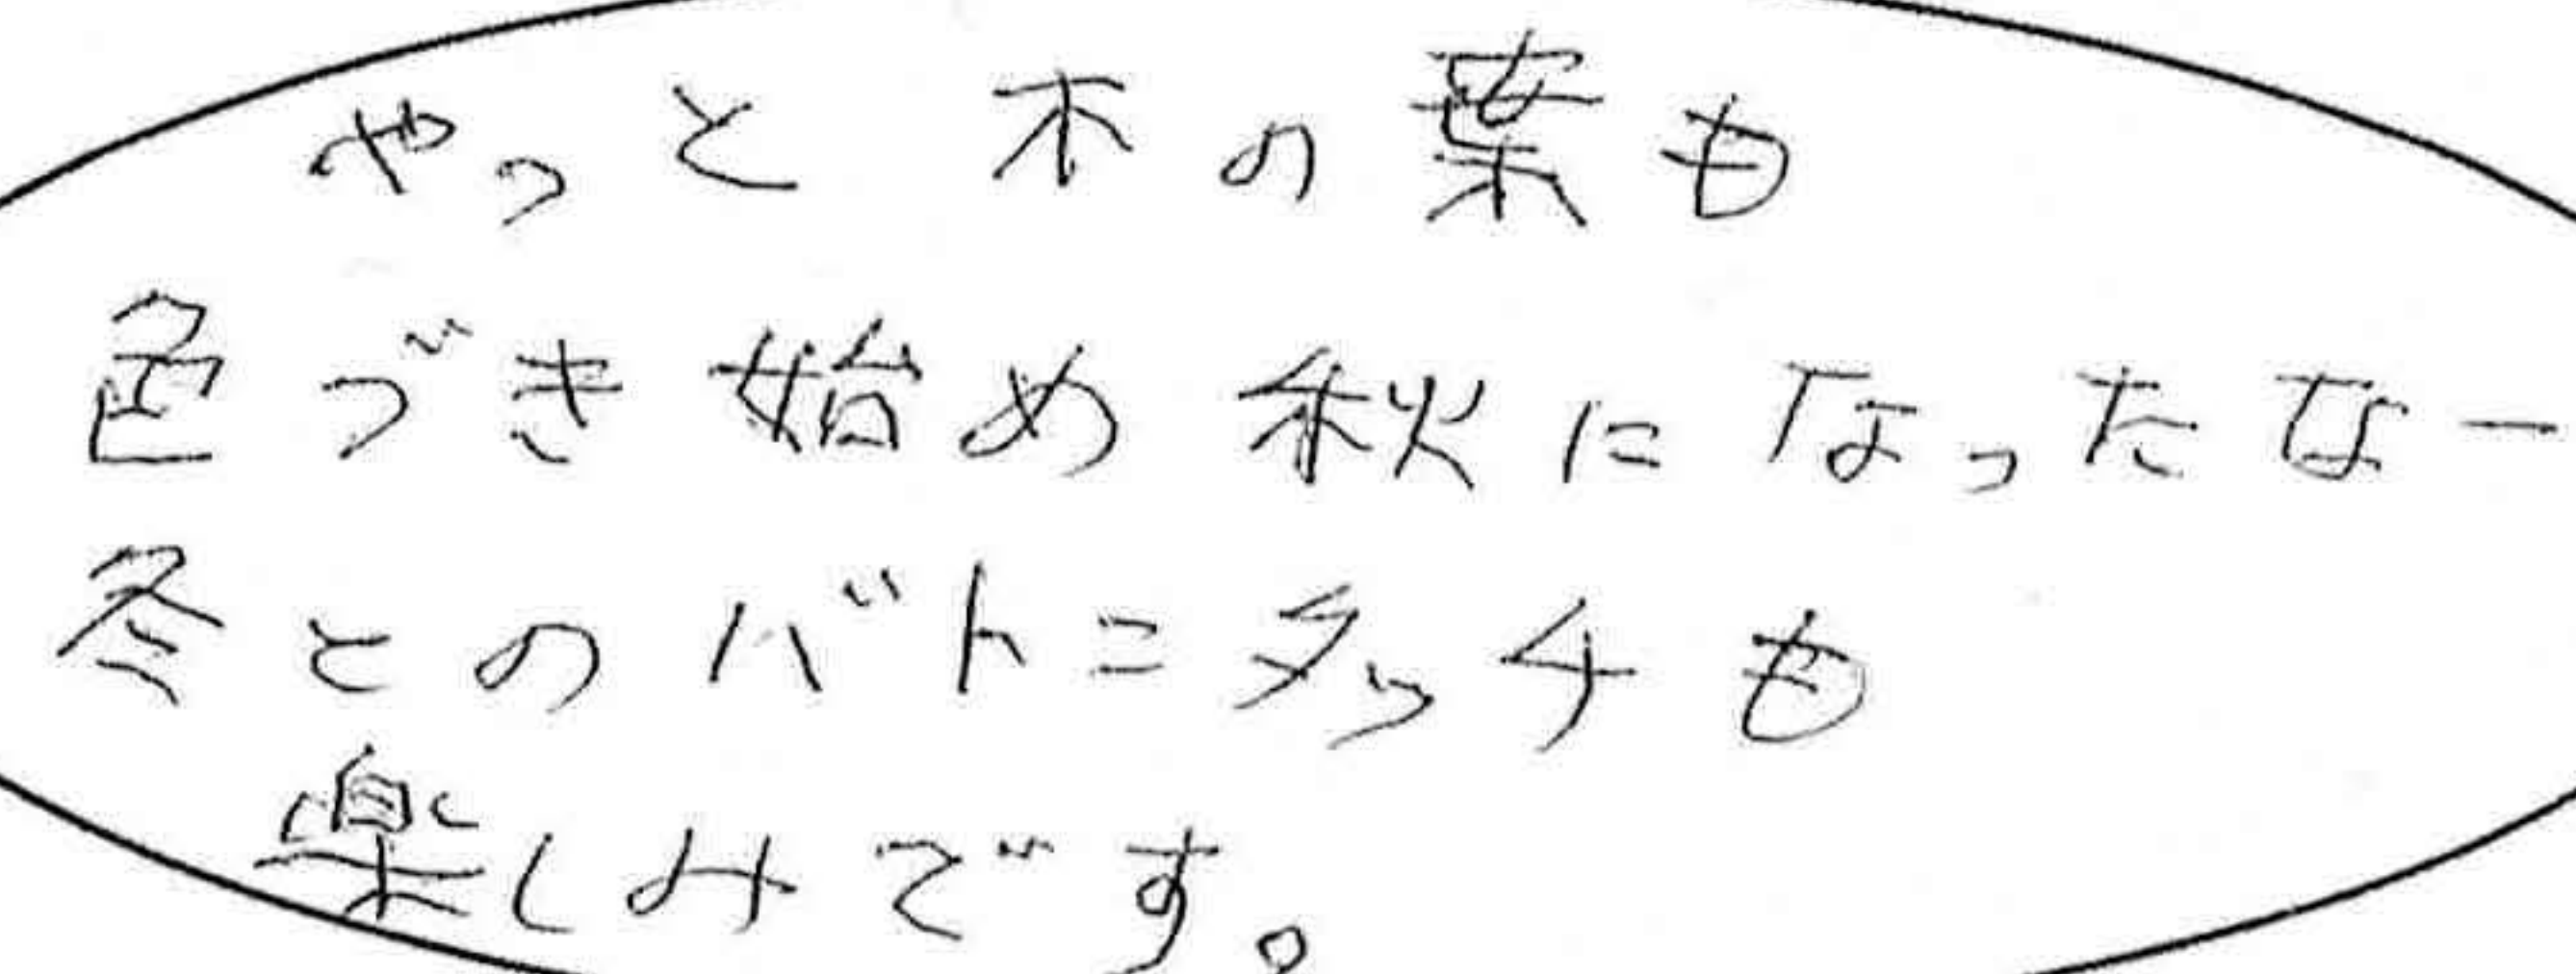 やっと木の葉も
色づき始め秋になったなー
冬とのバトニタッチも
楽しみです。